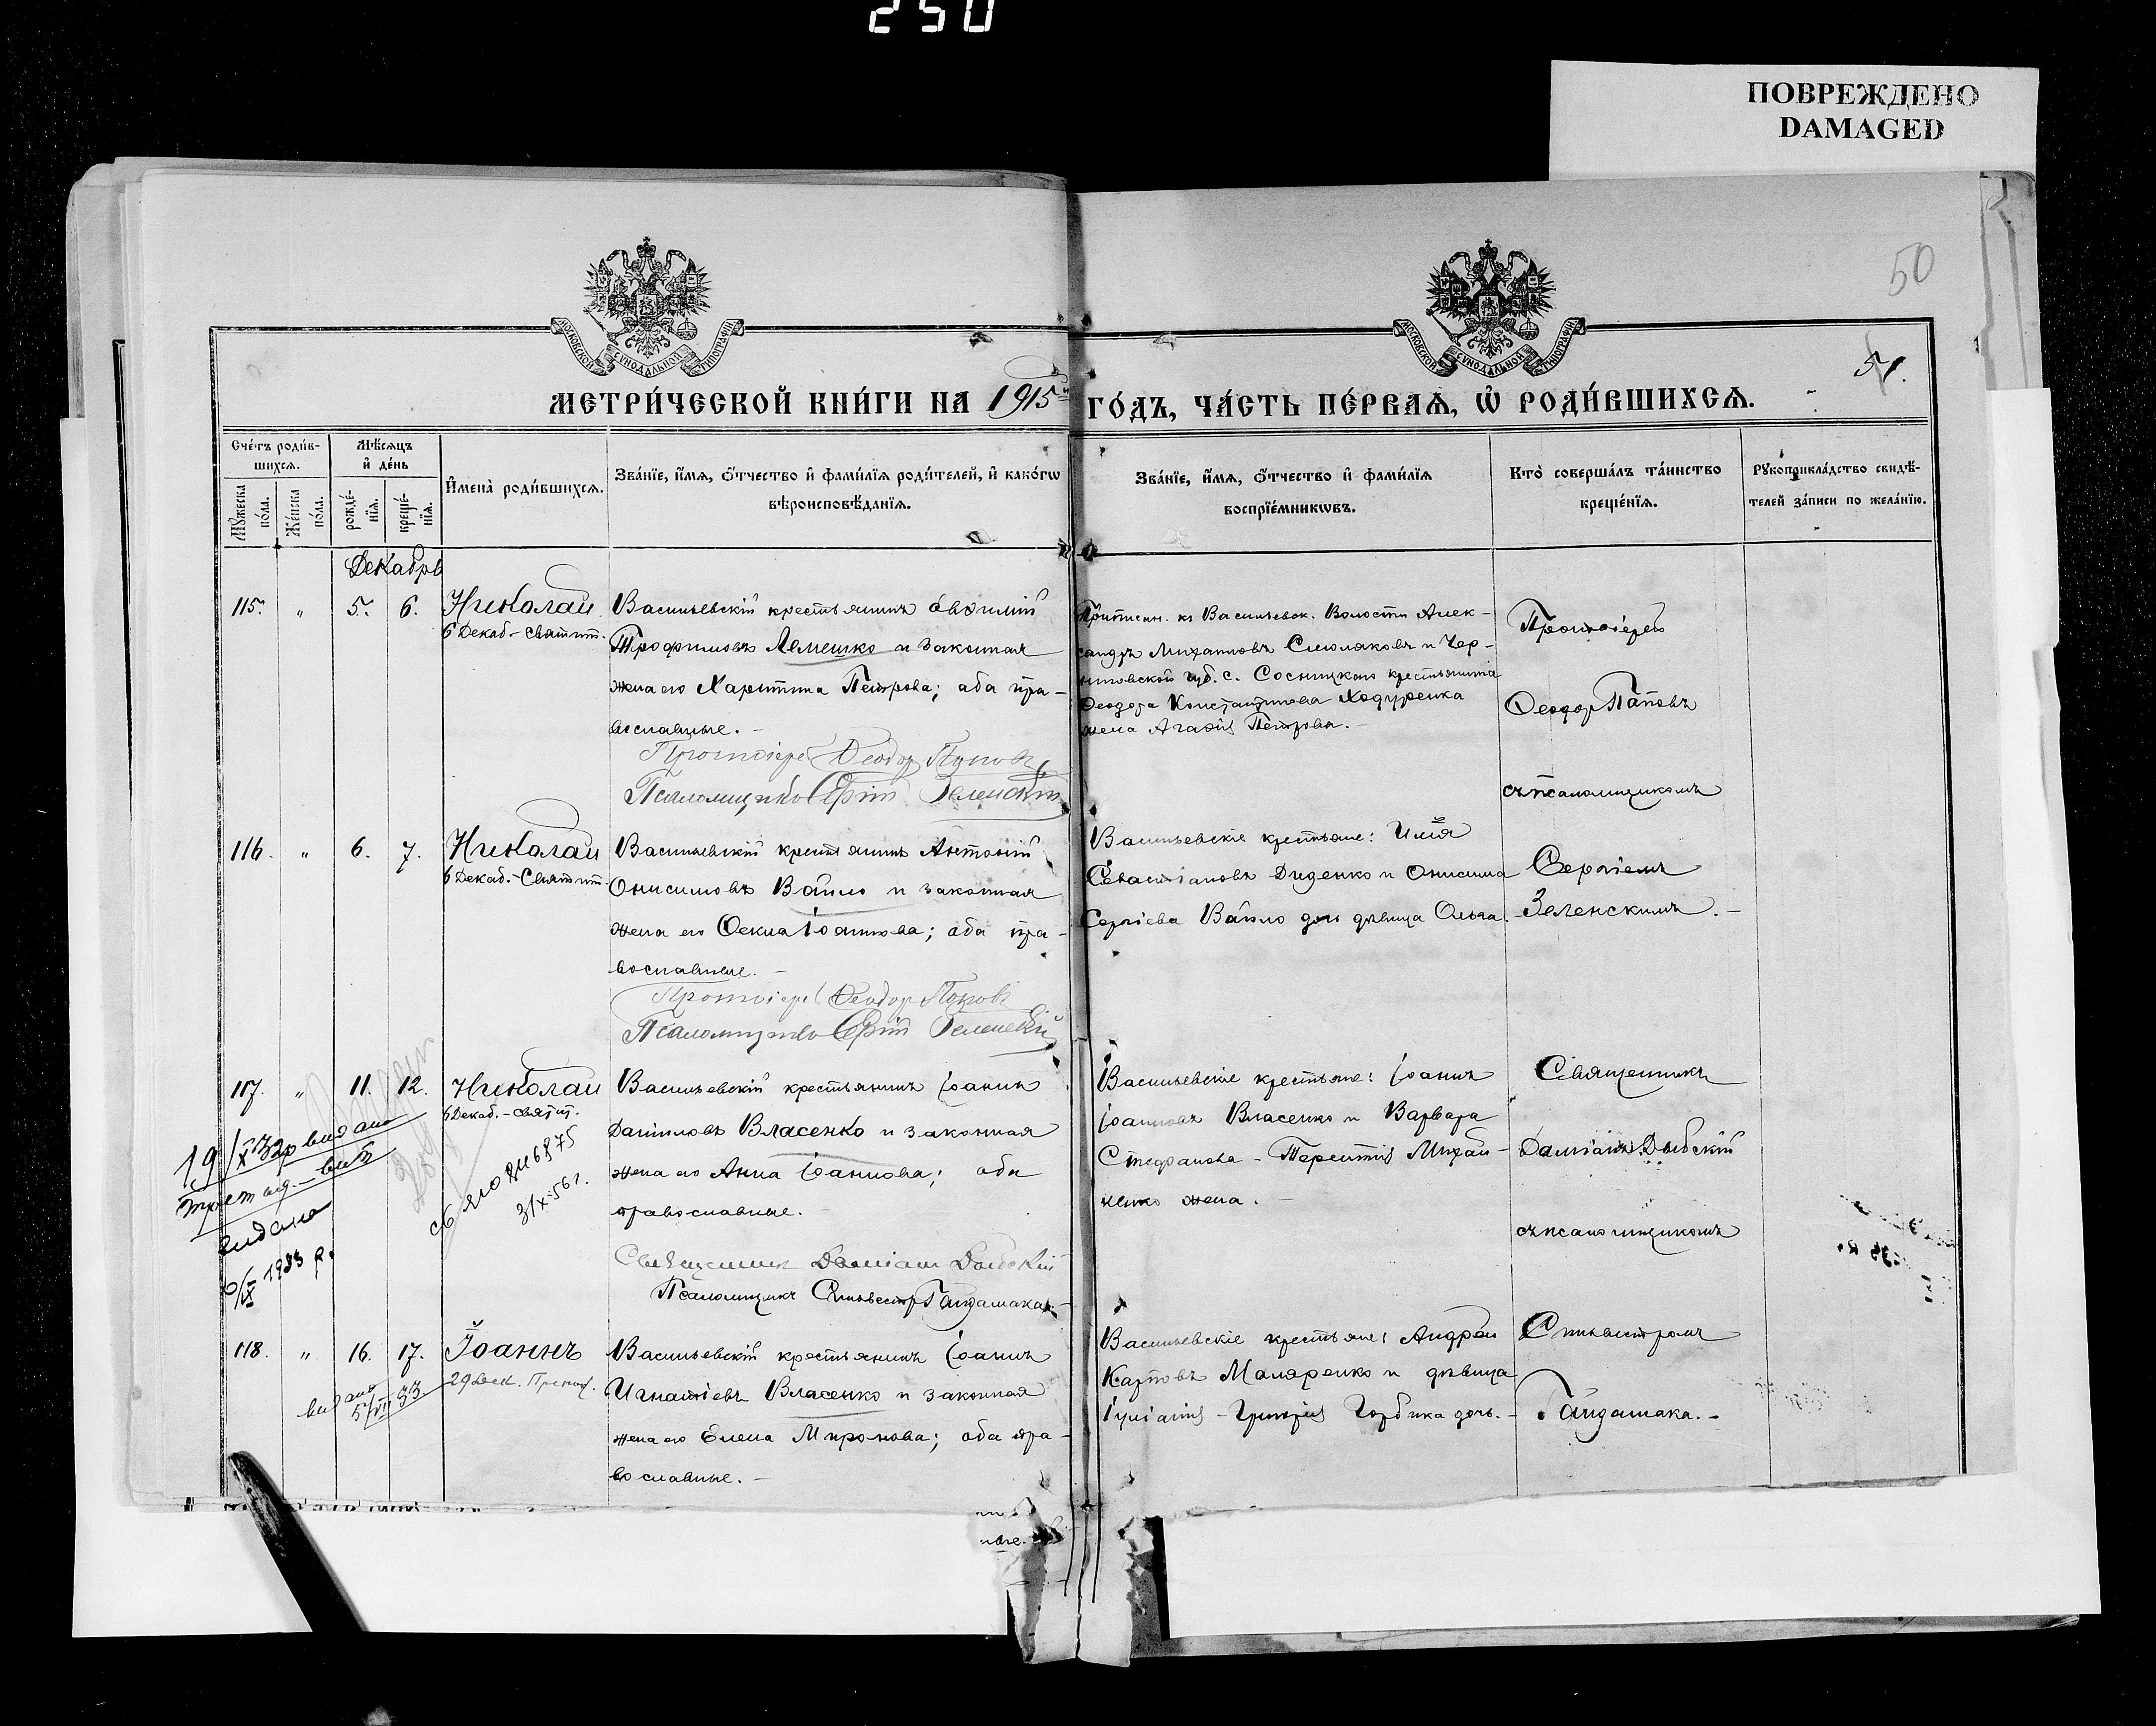 250
ПОВРЕЖДЕНО
DAMAGED
50
51.
МОСКОВСКОЙ СѴНОДАЛЬНОЙ ТИПОГРАФІИ
МОСКОВСКОЙ СѴНОДАЛЬНОЙ ТИПОГРАФІИ
МЕТРИ́ЧЕСКОЙ КНИ́ГИ НА 1915й ГО́ДЪ, ЧА́СТЬ ПЕ́РВАЯ, Ѡ РОДИ́ВШИХСЯ.
Сче́тъ роди́в-
шихся.
Мѣ́сяцъ
и҆ де́нь
Мꙋ́жеска по́ла.
Же́нска по́ла.
рожде́-
нїя.
креще́-
нїя.
И҆мена̀ роди́вшихся.
Зва́нїе, и҆́мя, ѻ҆́тчество и҆ фами́лїя роди́телей, и҆ како́гѡ
вѣроисповѣ́данїя.
Зва́нїе, и҆́мя, ѻ҆́тчество и҆ фами́лїя
воспрїе́мникѡвъ.
Кто̀ соверша́лъ та́инство
креще́нїя.
Рꙋкоприкла́дство свидѣ́-
телей за́писи по жела́нїю.
Декабрь
115. " 5. 6. Николай
6 Декаб.-Святит.
Васильевскій крестьянинъ
Трофимовъ Лемешко и законная
жена его Харитина Петрова; оба пра-
вославные.-
Протоіерей Ѳеодор Поповъ
Псаломщикъ Сергій Зеленскій
Приписан. къ Васильевск. Волости Алек-
сандръ Михаиловъ Смоляковъ и Чер-
ниговской губ. с. Сосницкаго крестьянина
Ѳеодора Константинова Ходуренка
жена Агаѳія Петрова.-
Протоіерей
Ѳеодор Поповъ
съ псаломщикомъ
116. " 6. 7. Николай
6 Декаб.-Святит.
Васильевскій крестьянинъ Антоній
Онисимовъ Вайло и законная
жена его Ѳекла Іоаннова; оба пра-
вославные.-
Протоіерей Ѳеодор Поповъ
Псаломщикъ Сергій Зеленскій
Васильевскіе крестьяне: Илія
Севастіановъ Диденко и Онисима
Сергіева Вайло дочь дѣвица Ольга.
Сергіемъ
Зеленскимъ.-
117. " 11. 12. Николай
6 Декаб.-Святит.
Васильевскій крестьянинъ Іоаннъ
Даниловъ Власенко и законная
жена его Анна Іоаннова; оба
православные.
Священникъ Даміанъ
Псаломщикъ Сильвестр Гайдамака.-
Васильевскіе крестьяне: Іоаннъ
Іоанновъ Власенко и Варвара
Стефанова - Терентія Михай-
ленко жена.-
Священникъ
Даміанъ
съ псаломщикомъ
19
видано
видана
1983 р.
ЯЮ № 6875
3/X-56 г.
118. " 16. 17. Іоаннъ
29 Дек.
видано
5/VII 33
Васильевскій крестьянинъ Іоаннъ
Игнатіевъ Власенко и законная
жена его Елена Миронова; оба пра-
вославные.-
Васильевскіе крестьяне: Андрей
Карповъ Маляренко и дѣвица
Іуліанія - Григорія Горбика дочь.-
Сильвестромъ
Гайдамака.-